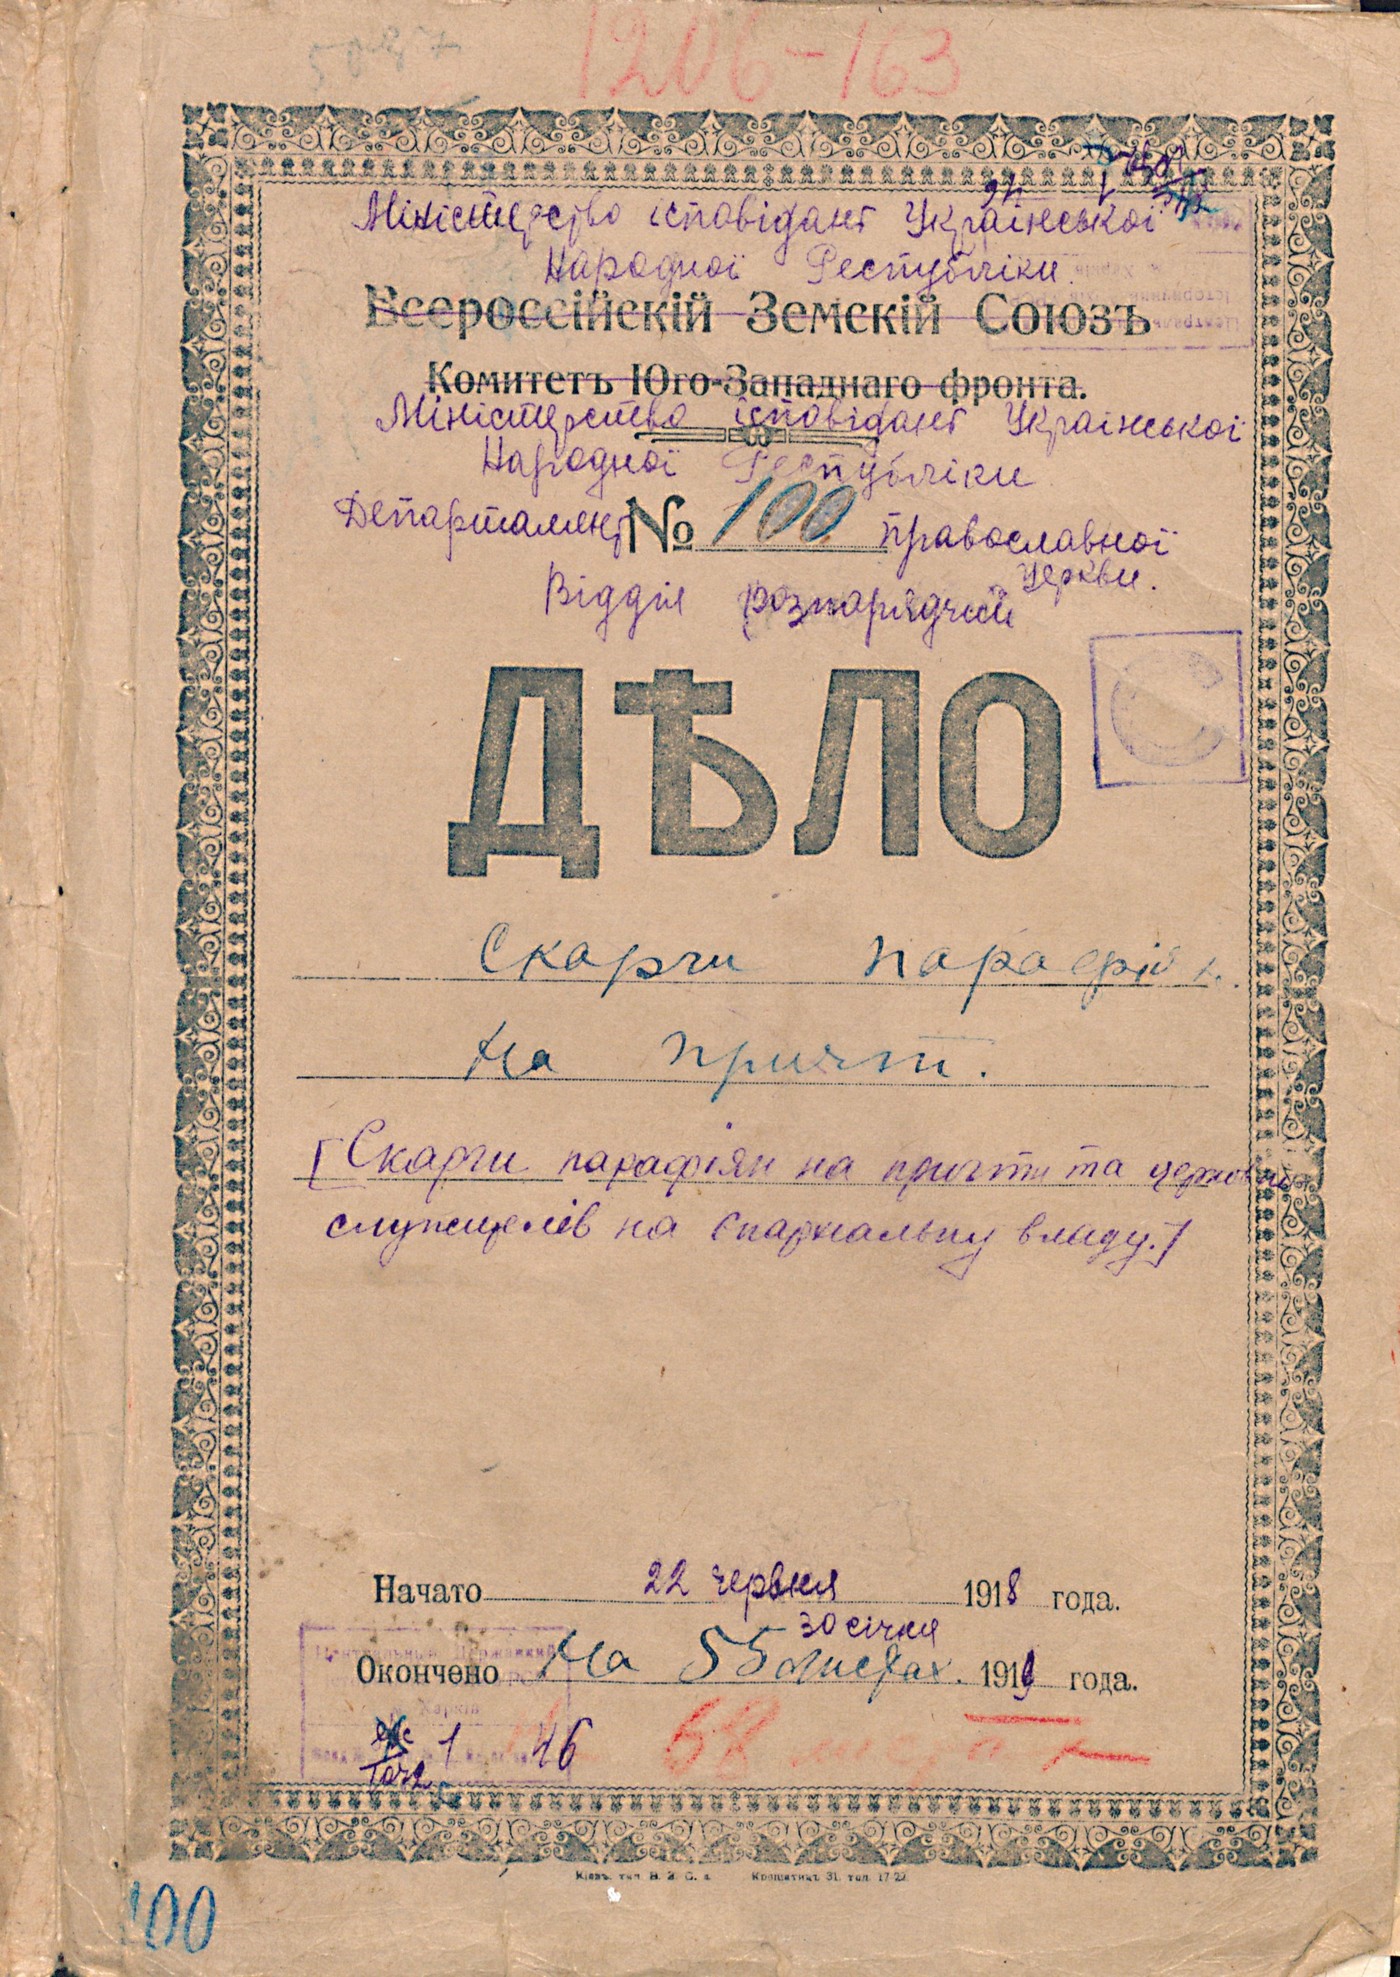 1206-163
Міністерство ісповідань Української
Народної Республіки.
Всероссійскій Земскій Союзъ
Комитетъ Юго-Западнаго фронта.
Міністерство ісповідань Української
Народної Республіки
Департамент № 100 православної
церкви.
Відділ розпорядчий
ДѢЛО
Скарги парафіян
на причт.
[Скарги парафіян на причти та церковно
служителів на єпархіальну владу.]
Начато 22 червня 1918 года.
30 січня
Окончено На 55 листах. 1919 года.
Центральний Державний
Харків
1 46
68
Кіевъ, тип. В. З. С.
Крещатикъ 31, тел. 17-22.
100